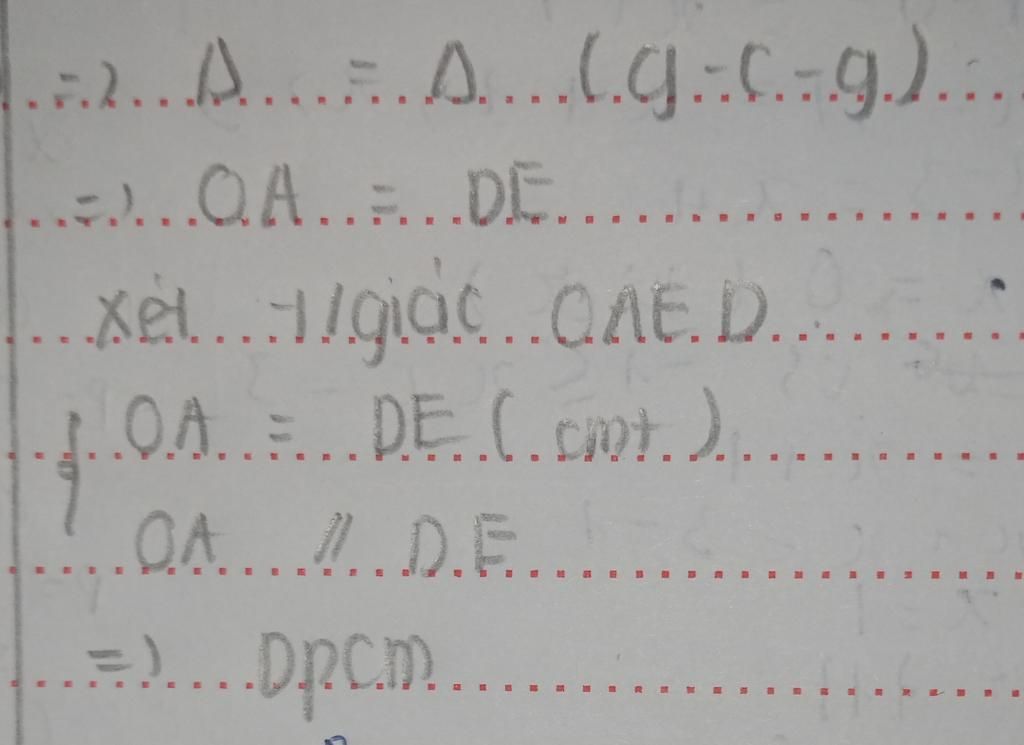 => Δ = Δ (g-c-g)
=> OA = DE
xét t/giác OAED
{ OA = DE (cmt)
OA // DE
=> Dpcm